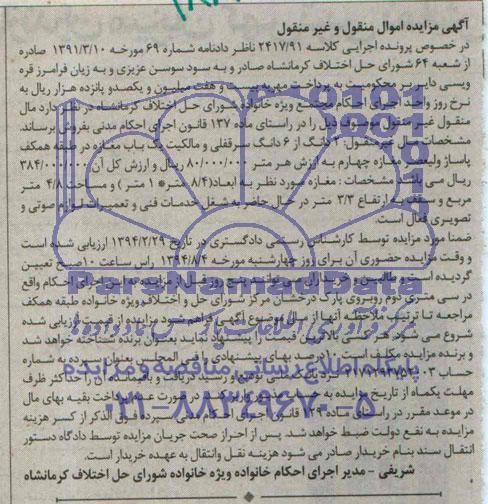 آگهی مزایده اموال منقول و غیر منقول
در خصوص پرونده اجرایی کلاسه ۲۴۱۷/۹۱ ناظر دادنامه شماره ۶۹ مورخه ۱۳۹۱/۳/۱۰ صادره
از شعبه ۶۴ شورای حل اختلاف کرمانشاه صادر و به سود سوسن عزیزی و به زیان فرامرز قره
ویسی دایر بر محکومیت به پرداخت مهریه بیست و هفت میلیون و یکصد و پانزده هزار ریال به
نرخ روز واحد اجرای احکام مجتمع ویژه خانواده شورای حل اختلاف کرمانشاه در نظر دارد مال
منقول غیر منقول موصوف ذیل را در راستای ماده ۱۳۷ قانون اجرای احکام مدنی بفروش برساند.
مشخصات مال غیر منقول: دانگ از ۶ دانگ سرقفلی و مالکیت یک باب مغازه در طبقه همکف
پاساژ ولیعصر مغازه چهارم به ارزش هر متر ۸۰/۰۰۰/۰۰۰ ریال و ارزش کل آن ۳۸۴/۰۰۰/۰۰۰
ریال می باشد مشخصات: مغازه مورد نظر به ابعاد (۸/۴ متر*۱ متر) و مساحت ۴/۸ متر
مربع و سقف به ارتفاع ۳/۳ متر در حال حاضر به شغل خدمات فنی و تعمیرات لوازم صوتی و
تصویری فعال است.
ضمنا مورد مزایده توسط کارشناس رسمی دادگستری در تاریخ ۱۳۹۴/۲/۲۹ ارزیابی شده است
و وقت مزایده حضوری آن برای روز چهارشنبه مورخه ۱۳۹۴/۸/۴ راس ساعت ۱۰ صبح تعیین
گردیده است و طالبین و خریداران می توانند پنج روز قبل از مزایده به این اجرای احکام واقع
در سی متری دوم روبروی پارک درخشان مرکز شورای حل و اختلاف ویژه خانواده طبقه همکف
مراجعه تا ترتیب ملاحظه آنها از مال موضوع آگهی فراهم شود مزایده از قیمت ارزیابی شده
شروع می شود هر کسی بالاترین قیمت را پیشنهاد نماید بعنوان برنده شناخته خواهد شد
و برنده مزایده مکلف است ۱۰ درصد بهای پیشنهادی را فی المجلس بعنوان سپرده به شماره
حساب سپرده تودیع و رسید دریافت و باقیمانده آن را حداکثر ظرف
مهلت یکماه از تاریخ مزایده به حساب مذکور واریز کند در صورت عدم پرداخت بقیه بهای مال
در موعد مقرر در راستای ماده ۱۲۹ قانون اجرای احکام مدنی سپرده فوق الذکر از کسر هزینه
مزایده به نفع دولت ضبط خواهد شد. پس از احراز صحت جریان مزایده توسط دادگاه دستور
انتقال سند بنام خریدار صادر می شود هزینه نقل وانتقال به عهده خریدار است.
شریفی - مدیر اجرای احکام خانواده ویژه خانواده شورای حل اختلاف کرمانشاه
ParsNamadData
پایگاه اطلاع رسانی مناقصه و مزایده
۰۲۱-۸۸۳۴۹۶۷۰-۵